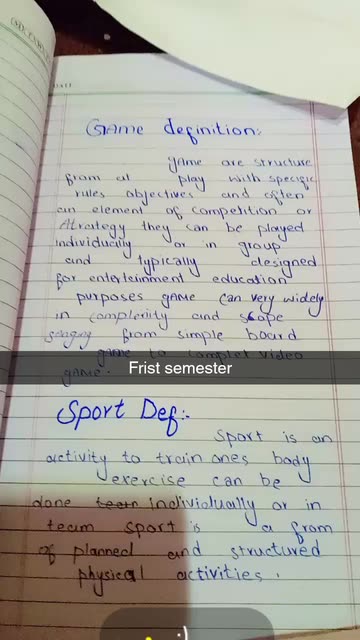 Game definition:
game are structure
from of play with specific
rules objectives and often
an element of competition or
strategy they can be played
individually or in group
and typically designed
for entertainment education
purposes game can very widely
in complexity and scope
from simple board
game to complet video
game.
Frist semester
Sport Def:-
Sport is an
activity to train ones body
exercise can be
done team individually or in
team sport is a from
of planned and structured
physical activities.